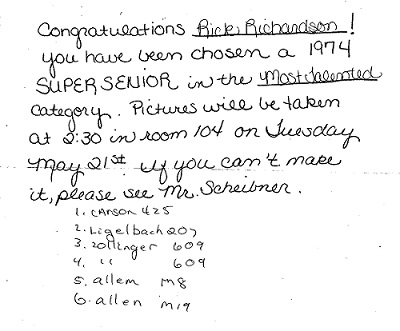 Congratulations Rick Richardson!
you have been chosen a 1974
SUPER SENIOR in the Most Talented
category. Pictures will be taken
at 2:30 in room 104 on Tuesday
May 21st. If you can't make
it, please see Mr. Scheibner.
1. CARSON 425
2. Ligelbach 207
3. Zollinger 609
4. " 609
5. allem m8
6. allen m19